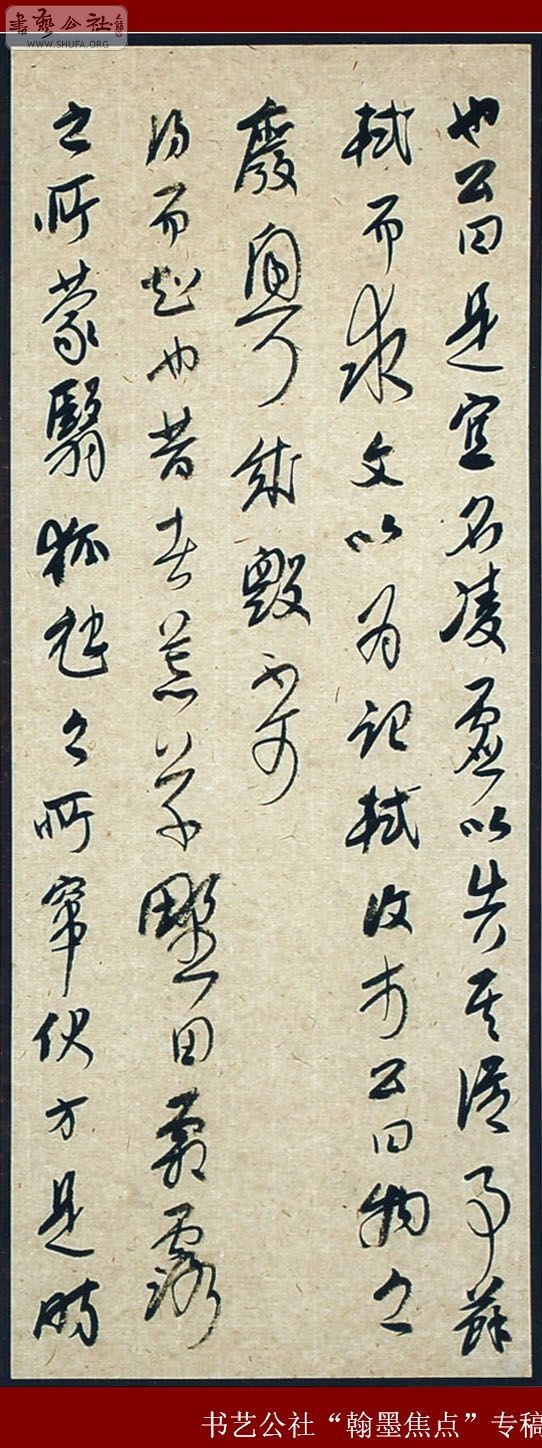 書藝公社
WWW.SHUFA.ORG
也公曰是宜名凌虛以告其從事蘇
軾而求文以為記軾復於公曰物之
廢興成毀不可
得而知也昔者荒草野田霜露
之所蒙翳狐虺之所竄伏方是時
书艺公社“翰墨焦点”专稿